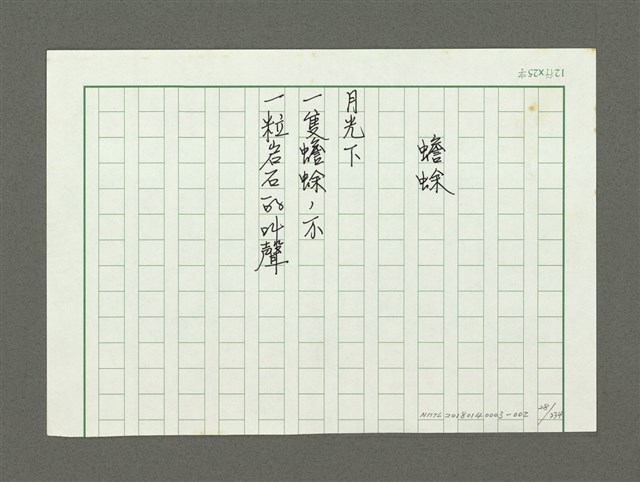 蟾蜍
月光下
一隻蟾蜍，不
一粒岩石的叫聲
12行X25字
NMTL20180140003-002
28/234